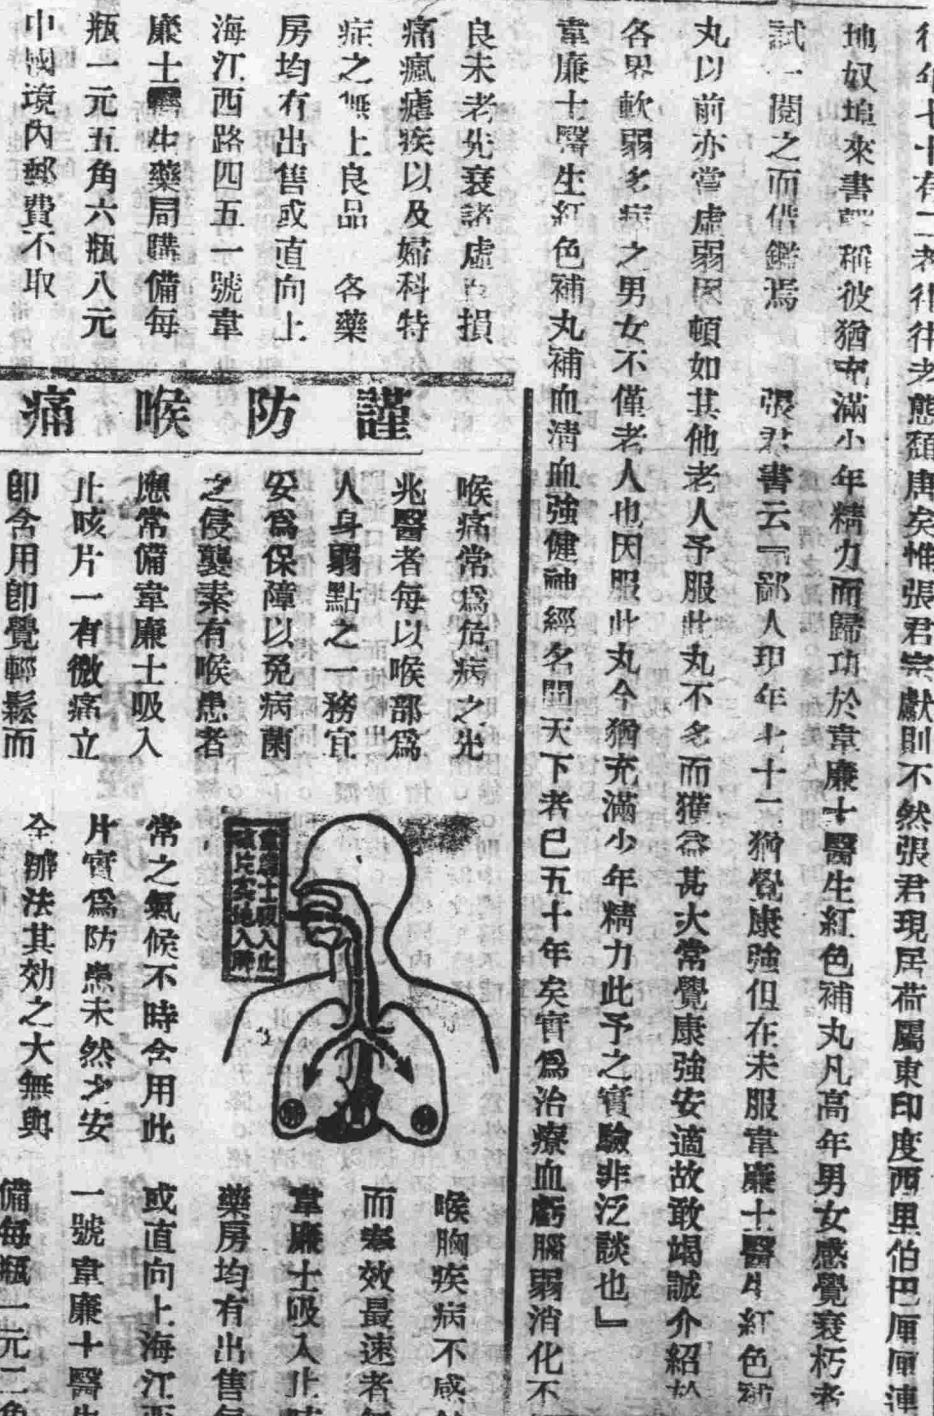 行年七十有二者往往老態頹唐矣惟張君宗獻則不然張君現居荷屬東印度西里伯巴厘厘連
地奴埠來書聲稱彼猶充滿少年精力而歸功於韋廉士醫生紅色補丸凡高年男女感覺衰朽者
試一閱之而借鑑焉 張君書云『鄙人印年七十二猶覺康強但在未服韋廉士醫生紅色補
丸以前亦當虛弱困頓如其他老人予服此丸不多而獲益甚大常覺康強安適故敢竭誠介紹於
各界軟弱多病之男女不僅老人也因服此丸今猶充滿少年精力此予之實驗非泛談也』
韋廉士醫生紅色補丸補血清血強健神經名聞天下者已五十年矣實為治療血虧腦弱消化不
良未老先衰諸虛百損
痛瘋瘧疾以及婦科特
症之無上良品 各藥
房均有出售或直向上
海江西路四五一號韋
廉士醫生藥局購備每
瓶一元五角六瓶八元
中國境內郵費不取
謹防喉痛
喉痛常為危病之先
兆醫者每以喉部為
人身弱點之一務宜
妥為保障以免病菌
之侵襲素有喉患者
應常備韋廉士吸入
止咳片一有微痛立
即含用即覺輕鬆而
韋廉士吸入止
常之氣候不時含用此
片實為防患未然之安
全辦法其効之大無與
肺
肺
喉胸疾病不感
而奏效最速者
韋廉士吸入止咳
藥房均有出售每
或直向上海江西
一號韋廉士醫生
備每瓶一元二角